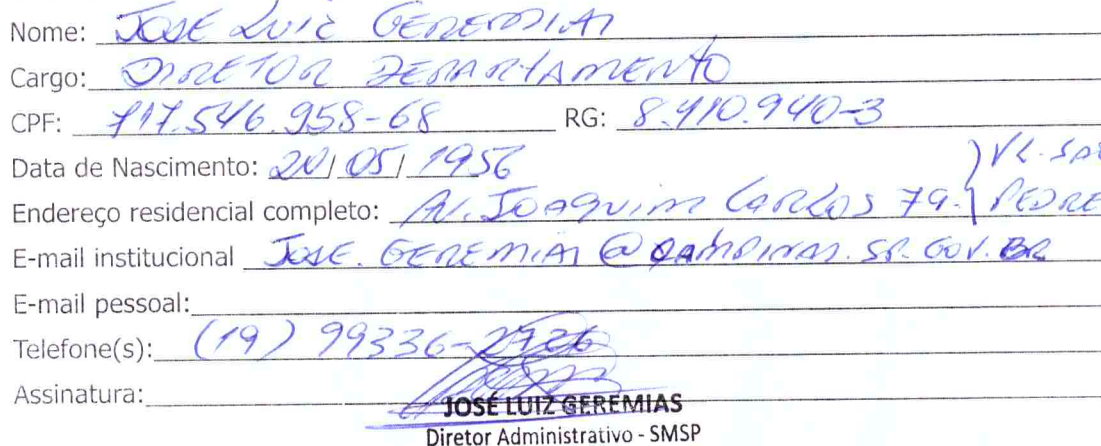 Nome: JOSE LUIZ GEREMIAS
Cargo: DIRETOR DEPARTAMENTO
CPF: 717.546.958-68 RG: 8.910.940-3
Data de Nascimento: 20/05/1956
Endereço residencial completo: AV. JOAQUIM CARLOS 79. } VL. SÃO PEDRE
E-mail institucional JOSE.GEREMIAS@CAMPINAS.SP.GOV.BR
E-mail pessoal:
Telefone(s): (19) 99336-2926
Assinatura:
JOSÉ LUIZ GEREMIAS
Diretor Administrativo - SMSP